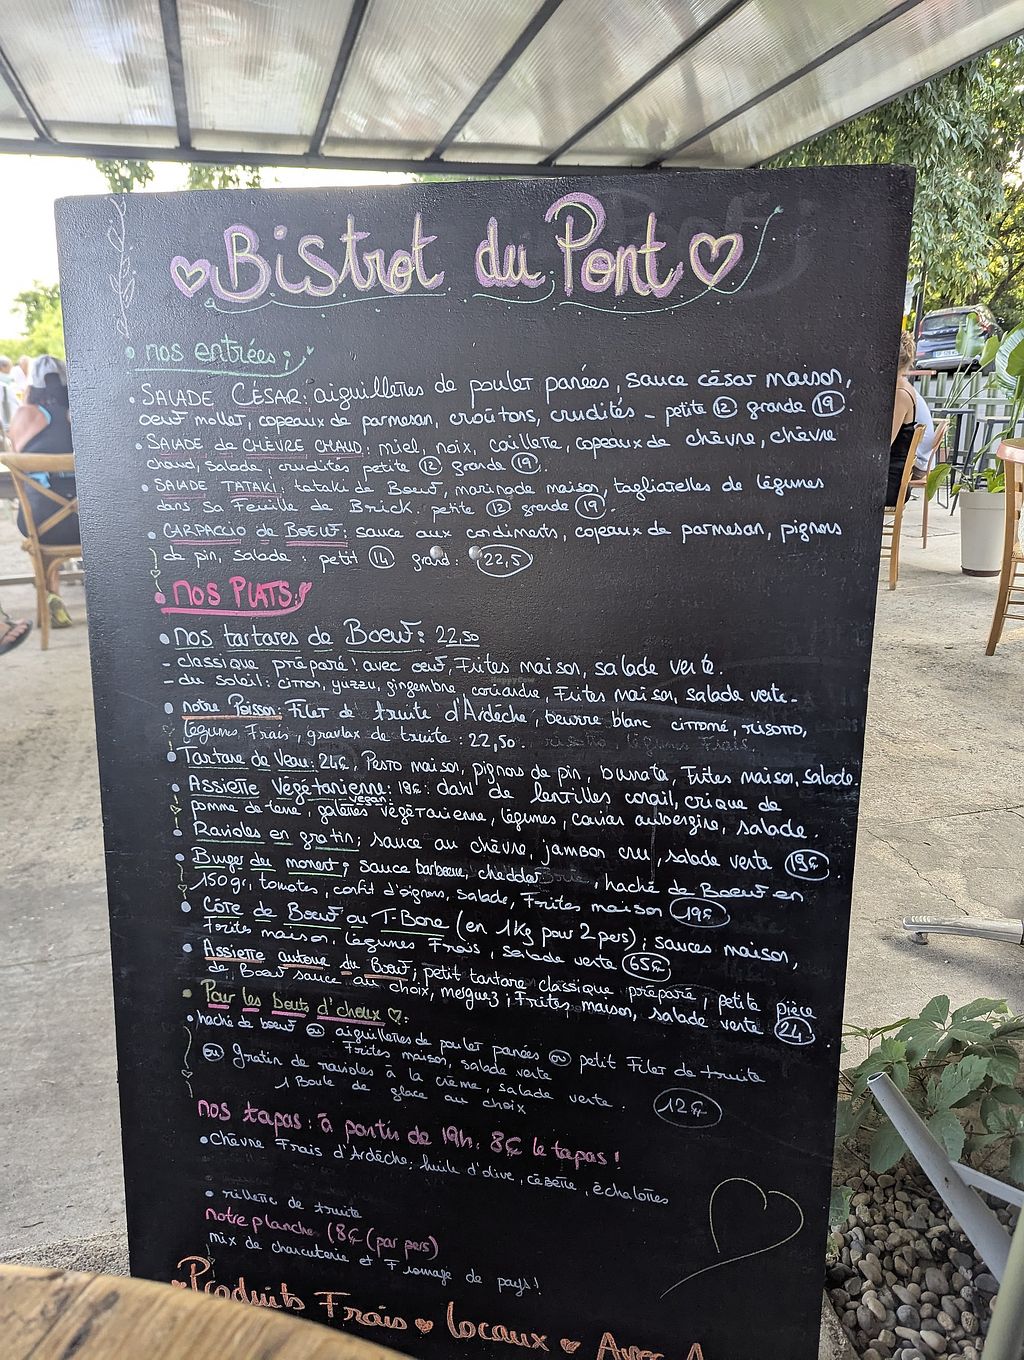 Bistrot du Pont
nos entrées ;
• SALADE CÉSAR: aiguillettes de poulet panées, sauce césar maison,
oeuf mollet, copeaux de parmesan, croûtons, crudités - petite 12 grande 19.
• SALADE de CHÈVRE CHAUD: miel, noix, caillette, copeaux de chèvre, chèvre
chaud, salade, crudités petite 12 grande 19.
• SALADE TATAKI: tataki de Boeuf, marinade maison, tagliatelles de légumes
dans sa Feuille de Brick. petite 12 grande 19.
• CARPACCIO de BOEUF: sauce aux condiments, copeaux de parmesan, pignons
de pin, salade : petit 14 grand : 22,5
nos PLATS:
• Nos tartares de Boeuf: 22,50
- classique préparé ! avec oeuf, Frites maison, salade verte.
- du soleil: citron, yuzzu, gingembre, coriandre, Frites maison, salade verte-
• notre Poisson: Filet de truite d'Ardèche, beurre blanc citronné, risotto,
légumes Frais, gravlax de truite : 22,50.
• Tartare de Veau: 24€. Pesto maison, pignons de pin, burrata, Frites maison, salade.
• Assiette Végétarienne: 18€: dahl de lentilles corail, crique de
vegan
pomme de terre, galettes végétarienne, légumes, caviar aubergine, salade.
• Ravioles en gratin; sauce au chèvre, jambon cru, salade verte 19€
• Burger du moment; sauce barbecue, cheddar, haché de Boeuf en
150gr, tomates, confit d'oignons, salade, Frites maison 19€
• Côte de Boeuf ou T-Bone (en 1Kg pour 2 pers); sauces maison,
Frites maison, légumes Frais, salade verte 65€
• Assiette autour du Boeuf; petit tartare classique préparé, petite pièce
de Boeuf sauce au choix, merguez; Frites maison, salade verte 24
• Pour les bouts d'choux :
• haché de boeuf ou aiguillettes de poulet panées ou petit Filet de truite
Frites maison, salade verte
ou Gratin de ravioles à la crème, salade verte.
1 Boule de glace au choix 12€
nos tapas: à partir de 19h. 8€ le tapas !
• Chèvre Frais d'Ardèche, huile d'olive, cébette, échalottes
• rillette de truite
notre planche (8€ (par pers)
mix de charcuterie et Fromage de pays!
Produits Frais locaux